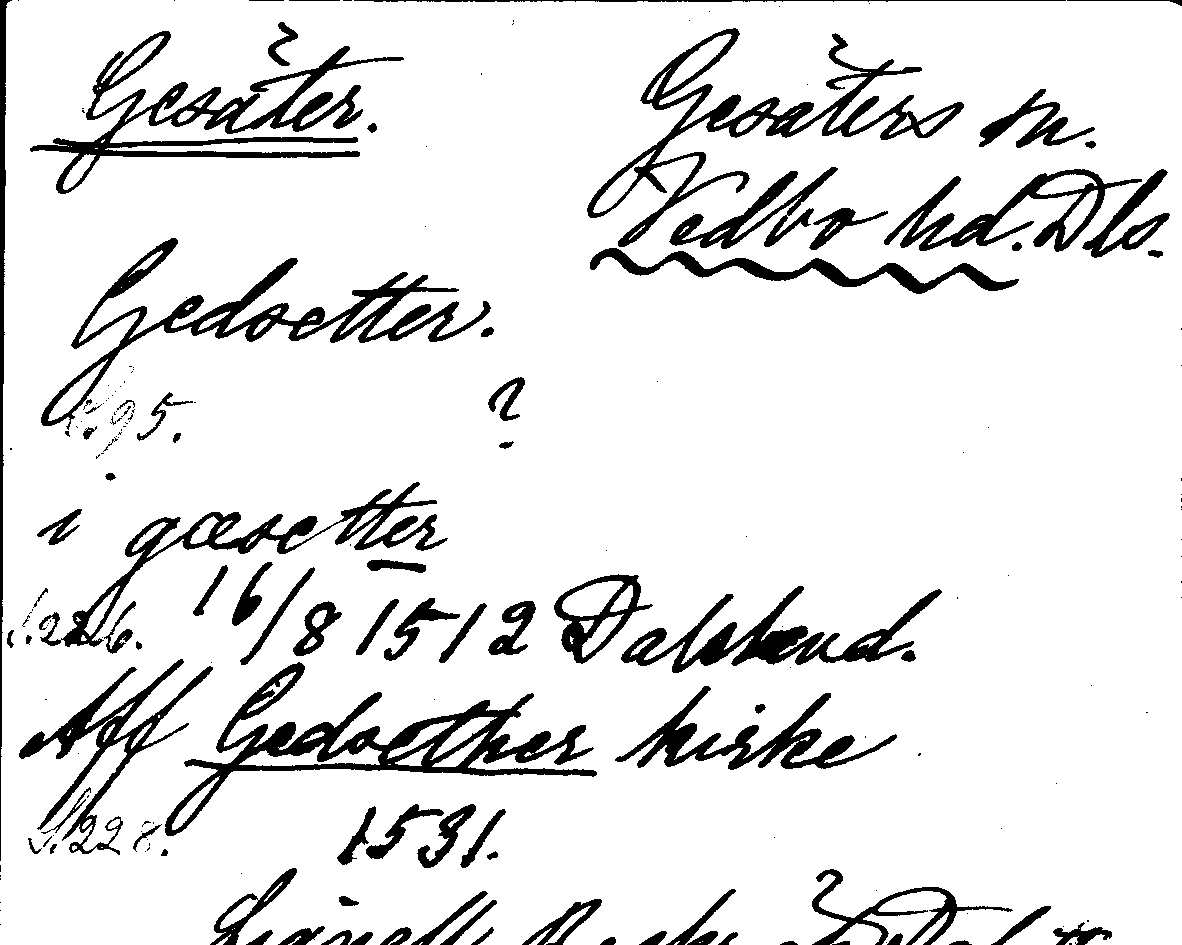 Gesäter.
Gesäters sn.
Vedbo hd. Dls.
Gedsetter.
S. 95. ?
i gæsetter
S. 226. 16/8 1512 Dalsland.
Aff Gedsether kirke
S. 228. 1531.
Lignell, Beskr. Dal II